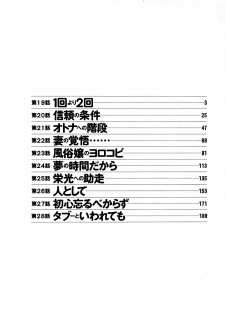 第19話 1回より2回 3
第20話 信頼の条件 25
第21話 オトナへの階段 47
第22話 妻の覚悟…… 69
第23話 風俗嬢のヨロコビ 91
第24話 夢の時間だから 113
第25話 栄光への助走 135
第26話 人として 153
第27話 初心忘るべからず 171
第28話 タブーといわれても 189